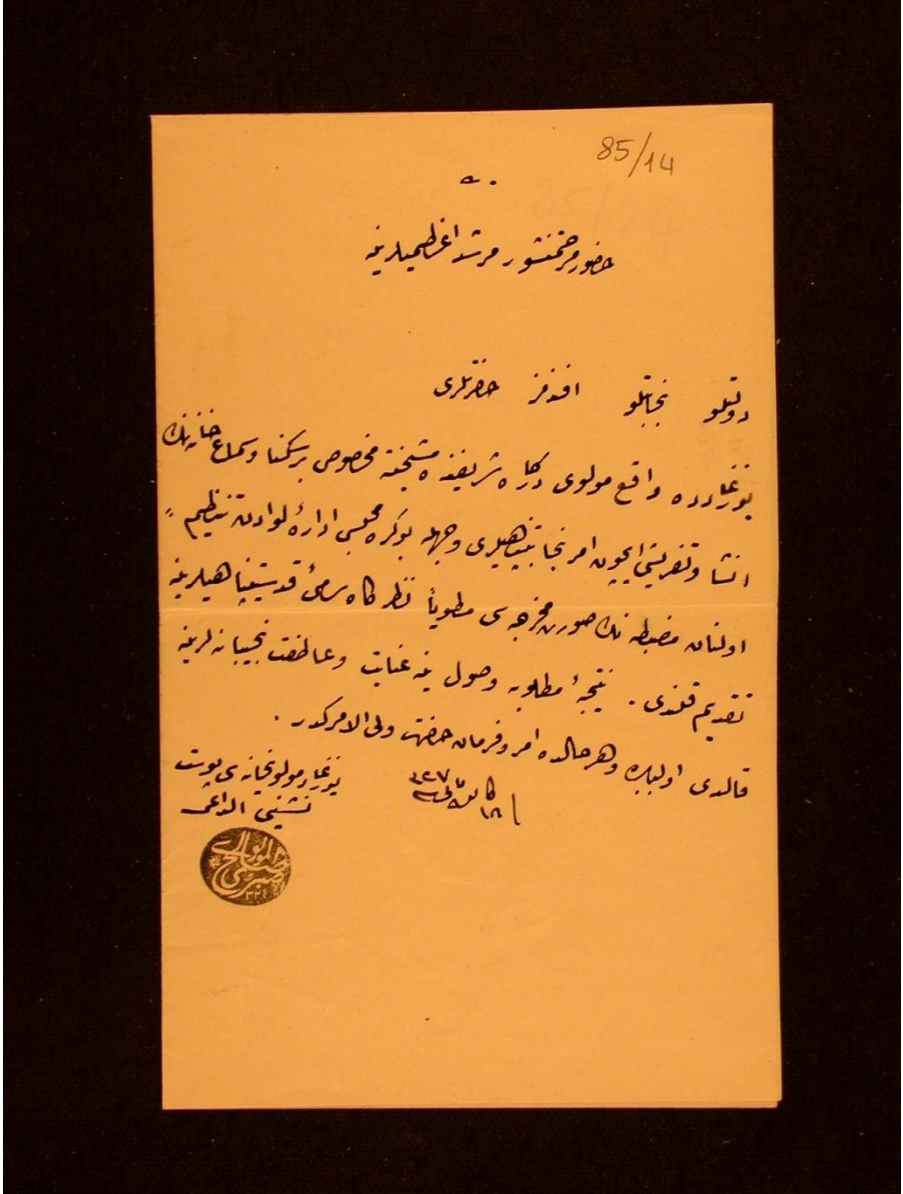 85/14
حضور مرحمتنشور مرشد اعظميلرينه
دولتلو نجابتلو افندمز حضرتلرى
يوزغادده واقع مولوى دركاه شريفنده مشيخته مخصوص بر سكنا و سماع خانه نك
انشا و تفريشى ايچون امر نجابتپناهيلرى وجهله بوكره مجلس ادارۀ لوادن تنظيم
اولنان مضبطه نك صورت مخرجه سى مطوياً نظركاه سامئ قدسيتپناهيلرينه
تقديم قلندى . نتيجۀ مطلوبه وصول ينه عنايت و عاطفت نجيبانه لرينه
قالدى اولبابده و هر حالده امر و فرمان حضرت ولى الامركدر .
١٨ كانون ثانى سنه ٣٢٧
يوزغاد مولويخانه سى پوست
نشينى الداعى